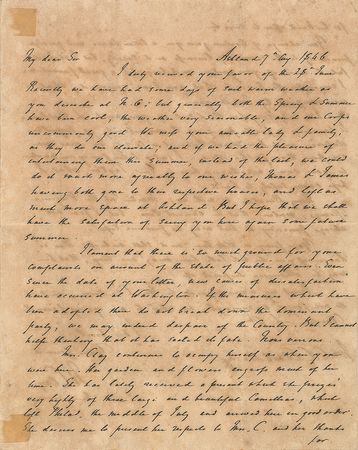 My dear Sir Ashland 7th Aug. 1846
I duly received your favor of the 28h June
Recently we have had some days of such warm weather as
you describe at N. O; but generally both the Spring & Summer
have been cool, the weather very seasonable, and our Crops
uncommonly good. We wish your amiable lady & family,
as they do our climate; and if we had the pleasure of
entertaining them this summer, instead of the last, we could
do it much more agreeably to our wishes, Thomas & James
having both gone to their respective homes, and left us
much more space at Ashland. But I hope that we shall
have the satisfaction of seeing you here again some future
summer.
I lament that there is so much ground for your
complaints on account of the state of public affairs. Even
since the date of your letter, new causes of dissatisfaction
have occurred at Washington. If the measures which have
been adopted there do not break down the dominant
party, we may indeed despair of the Country. But I cannot
help thinking that it has sealed its fate.
Mrs. Clay continues to occupy herself as when you
were here. Her garden and flowers engross much of her
time. She has lately received a present which she prizes
very highly of three large and beautiful Camellias, which
left Philad. the middle of July and arrived here in good order.
She desires me to present her respects to Mrs. C. and her thanks
for